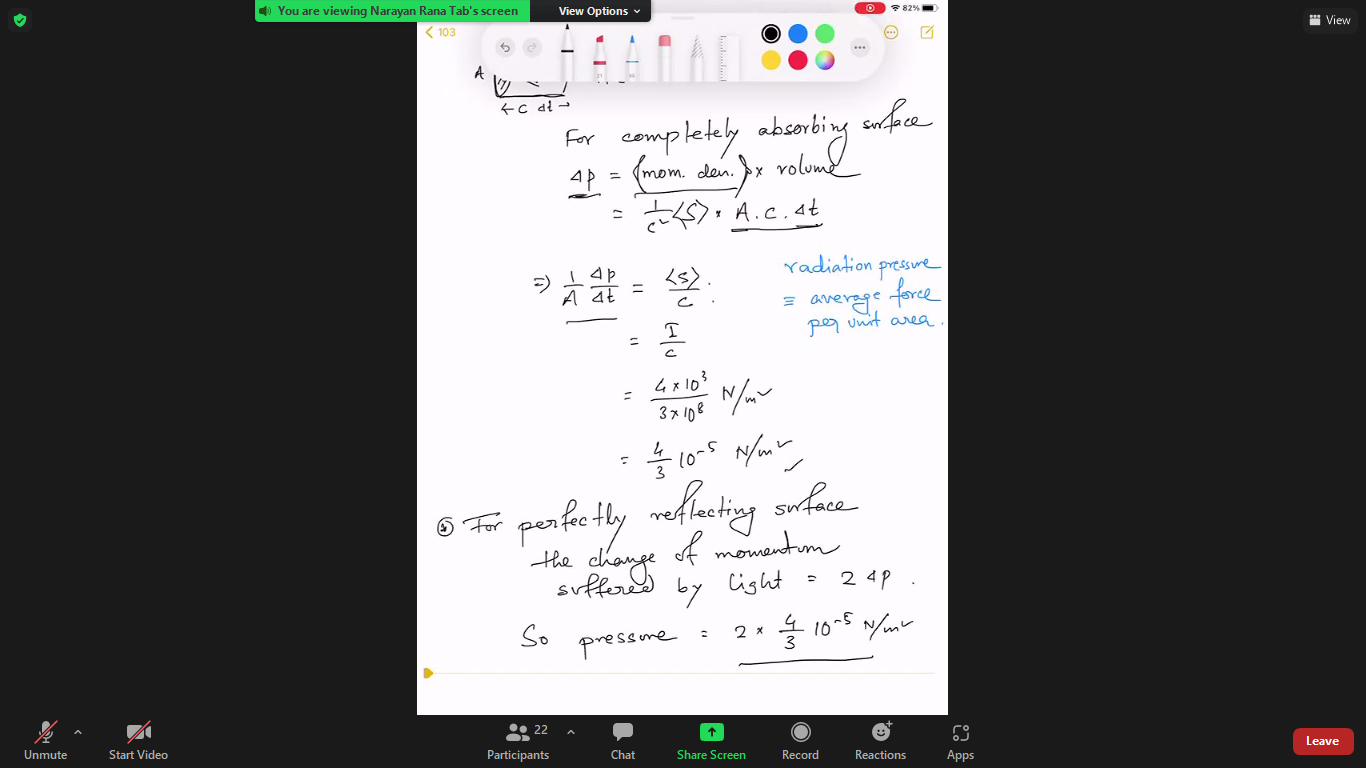 You are viewing Narayan Rana Tab's screen
View Options
82%
View
103
A
← c Δt →
For completely absorbing surface
Δp = (mom. den.) × volume
= 1/c² ⟨S⟩ · A . c . Δt
⇒ 1/A Δp/Δt = ⟨S⟩/c .
radiation pressure
≡ average force
per unit area .
= I/c
= 4×10³/3×10⁸ N/m²
= 4/3 10⁻⁵ N/m²
For perfectly reflecting surface
the change of momentum
suffered by light = 2 Δp .
So pressure = 2 × 4/3 10⁻⁵ N/m²
Unmute
Start Video
Participants
22
Chat
Share Screen
Record
Reactions
Apps
Leave